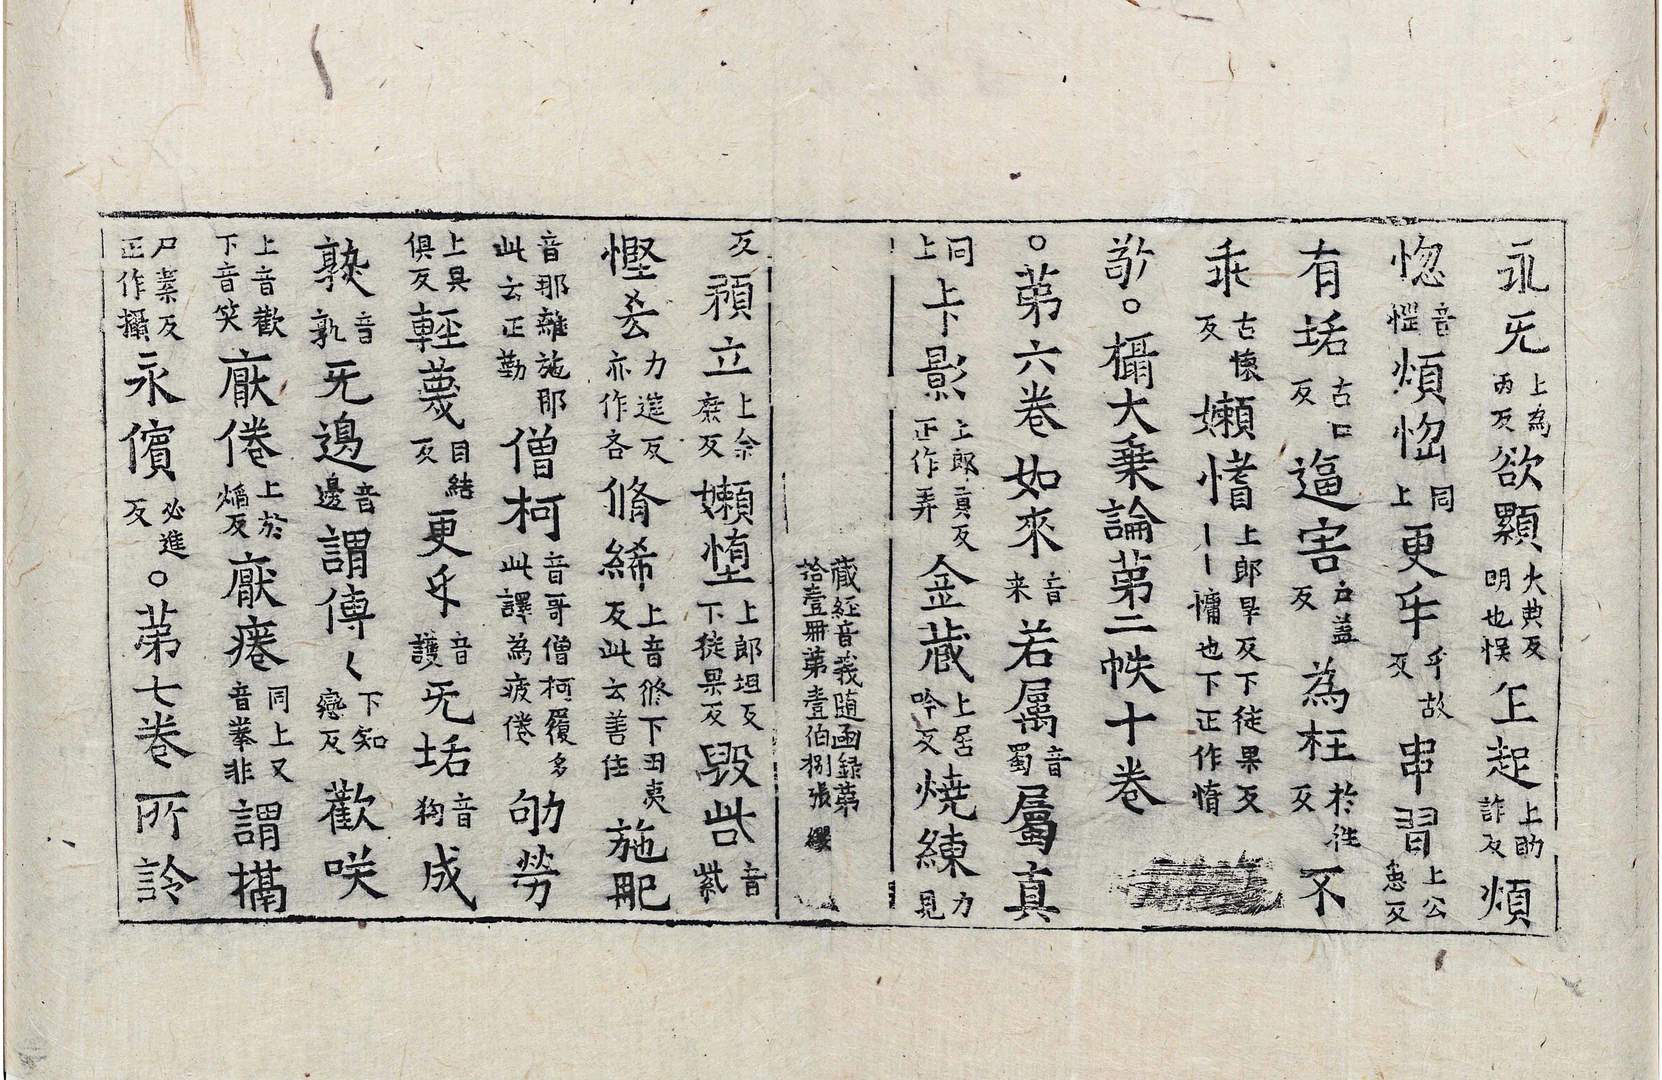 永旡上為丙反欲顆大典反明也悮㱏起上助詐反煩
惚音惛煩惚同上更𢆯乎故反串習上公患反
有垢古口反逼害戸盖反為枉於往反不
乖古懷反嬾愭上郎旱反下徒果反丨丨慵也下正作惰
敨○攝大乗論第二帙十巻
○苐六巻如來音来若属音蜀屬真
同上卡影上郎貢反正作弄金蔵上居吟反焼練力見
蔵経音義随函録苐
拾壹冊苐壹伯捌張
反䫙立上余庶反嬾惰上郎坦反下徒果反毁呰音紫
慳𠫤力進反亦作吝脩絺上音修下丑夷反此云善住施𠕋
音那離施那此云正勤僧柯音哥僧柯履多此譯為疲倦劬勞
上具俱反輕蔑目結反更𢆯音護旡垢音狗成
孰音孰旡邊音邊謂傅〻下知戀反歡咲
上音歡下音笑厭倦上於焔反厭㢧同上又音拳非謂攝
尸葉反正作攝永儐必進反○苐七巻所詅